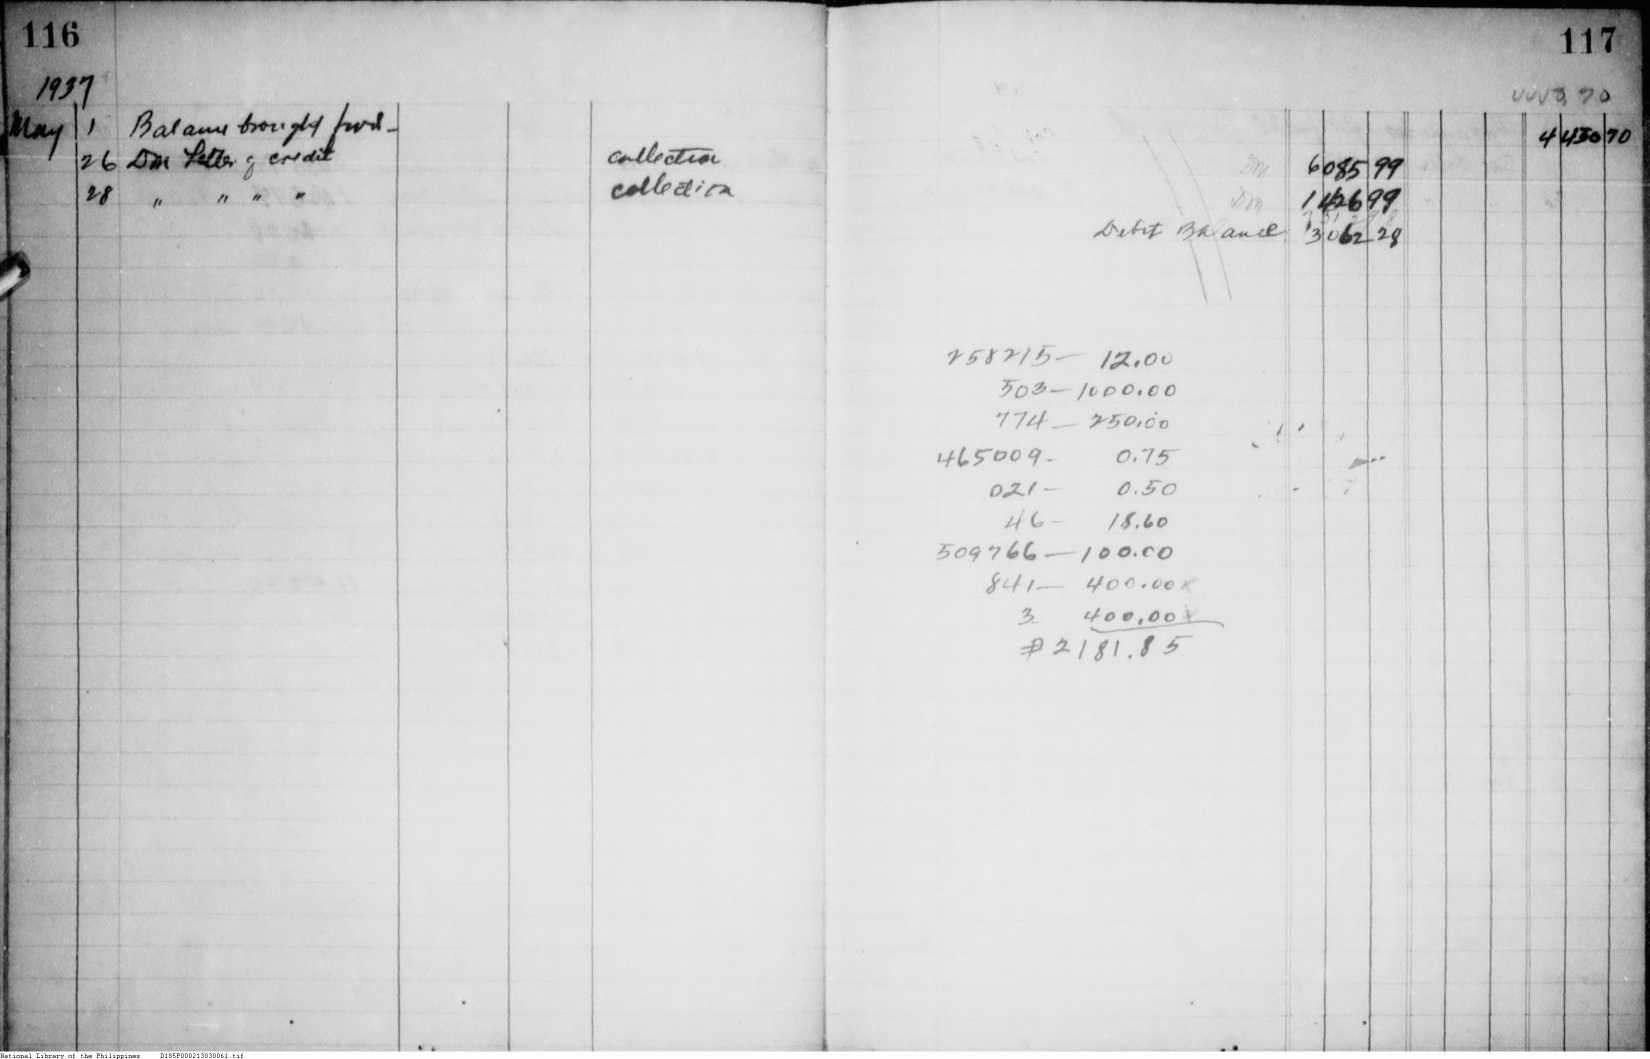 116
117
1937
May 1 Balance brought fwd- 4 450 70
26 DM Letter of credit collection DM 6085 99
28 " " " " collection DM 1426 99
Debit Balance 3062 28
258215- 12.00
503-1000.00
774- 250.00
465009- 0.75
021- 0.50
46- 18.60
509766-100.00
841- 400.00x
3 400.00x
₱2181.85
National Library of the Philippines D185P000213030061.tif